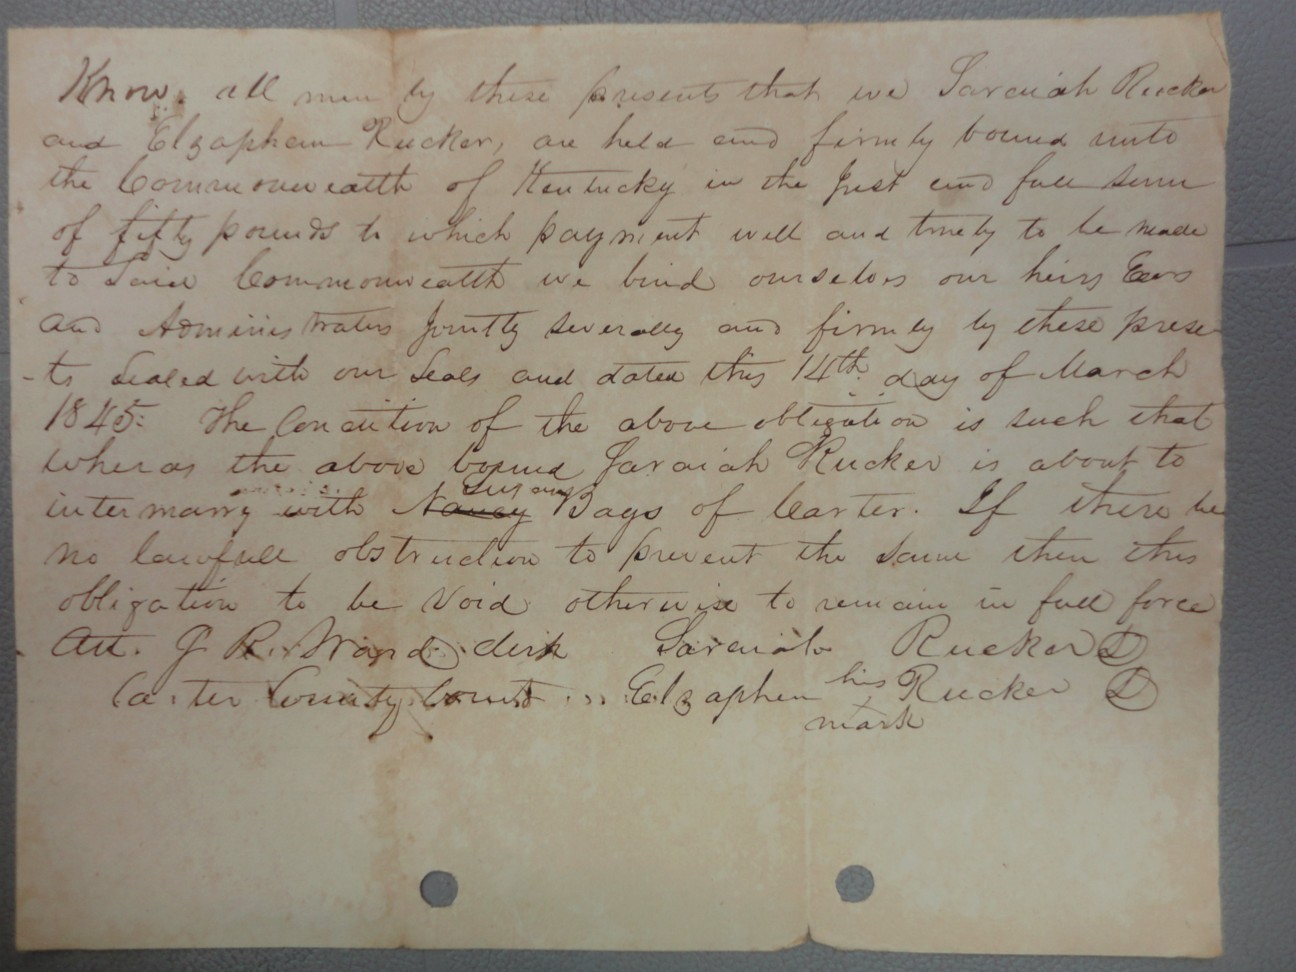 Know all men by these presents that we Saraiah Rucker
and Elzaphan Rucker, are held and firmly bound unto
the Commonwealth of Kentucky in the Just and full sum
of fifty pounds to which payment well and truly to be made
to Said Commonwealth we bind ourselves our heirs Exrs
and Administrators Jointly severally and firmly by these prese
-ts Sealed with our Seals and dated this 14th day of March
1845: The Condition of the above obligation is such that
wheras the above bound Saraiah Rucker is about to
Susany
intermarry with Nancy Bays of Carter. If there be
no lawfull obstruction to prevent the same then this
obligation to be Void otherwise to remain in full force
Att. G R. Ward clerk Saraiah Rucker
Carter County Court Elzaphen his Rucker
mark